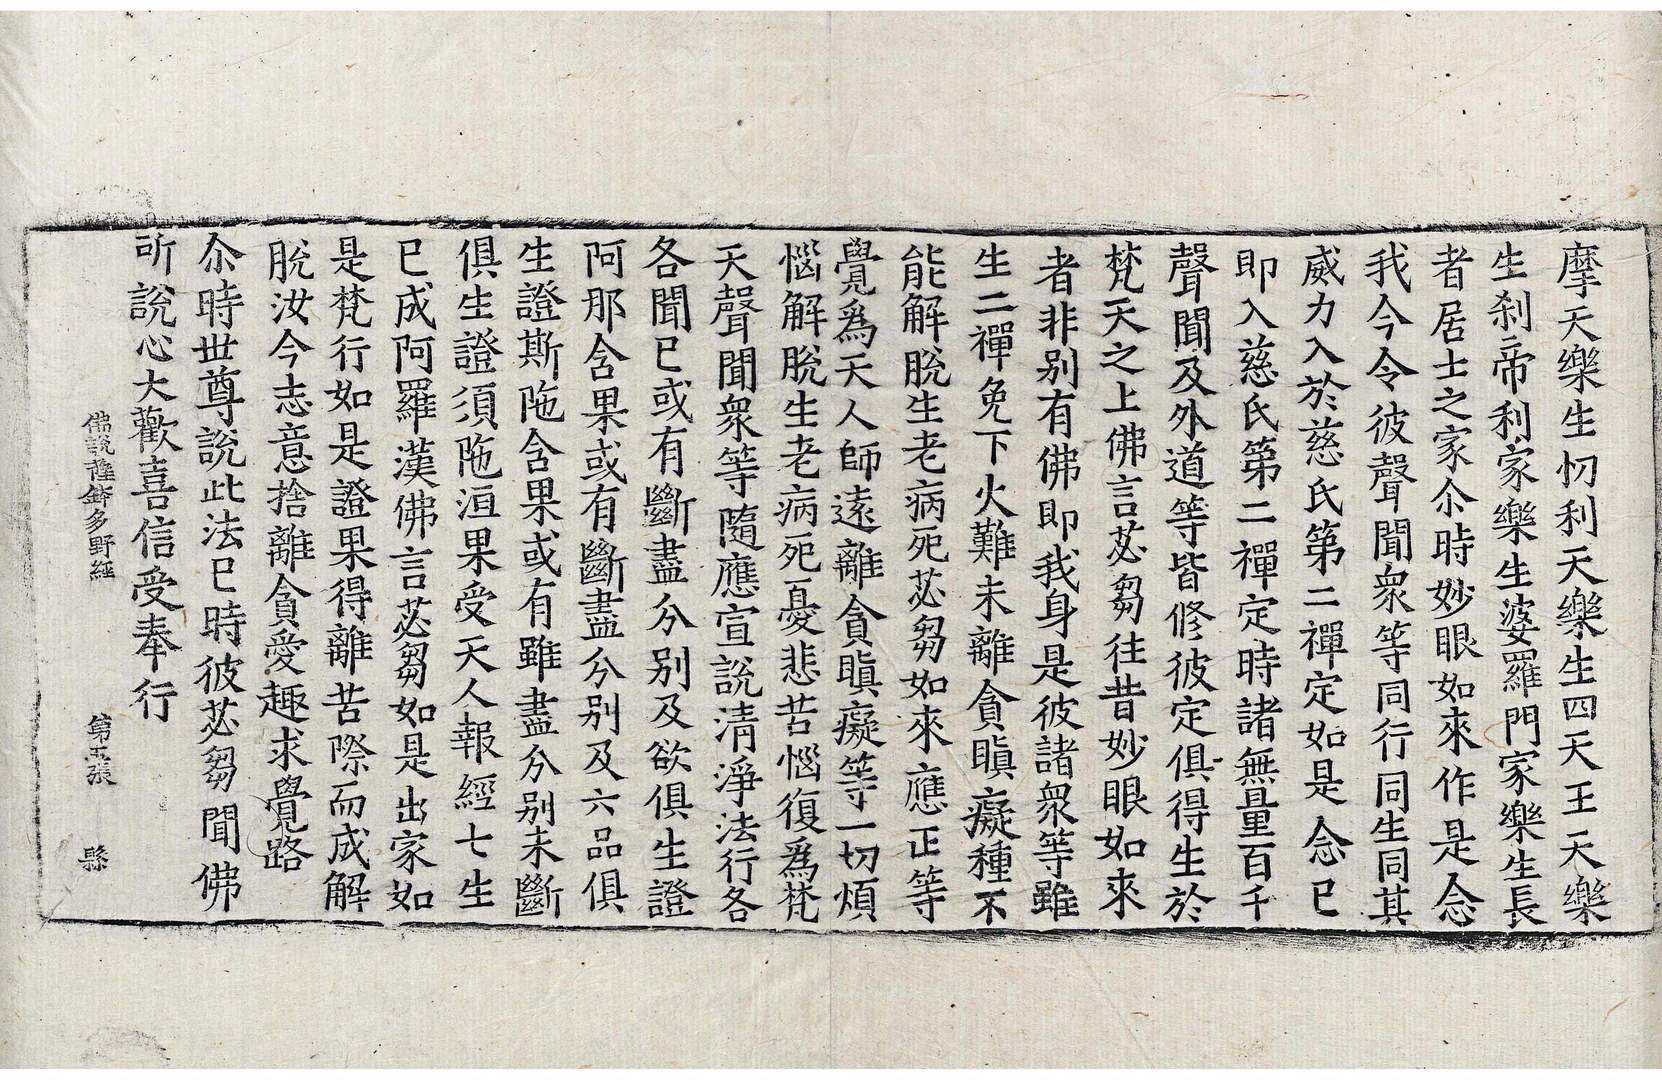 摩天樂生忉利天樂生四天王天樂
生刹帝利家樂生婆羅門家樂生長
者居士之家尒時妙眼如來作是念
我今令彼聲聞衆等同行同生同其
威力入於慈氏第二禪定如是念已
即入慈氏第二禪定時諸無量百千
聲聞及外道等皆修彼定俱得生於
梵天之上佛言苾芻往昔妙眼如來
者非别有佛即我身是彼諸衆等雖
生二禪免下火難未離貪瞋癡種不
能解脫生老病死苾芻如來應正等
覺爲天人師遠離貪瞋癡等一切煩
惱解脫生老病死憂悲苦惱復爲梵
天聲聞衆等隨應宣說清淨法行各
各聞已或有斷盡分别及欲俱生證
阿那含果或有斷盡分别及六品俱
生證斯陁含果或有雖盡分别未斷
俱生證須陁洹果受天人報經七生
已成阿羅漢佛言苾芻如是出家如
是梵行如是證果得離苦際而成解
脫汝今志意捨離貪愛趣求覺路
尒時世尊說此法已時彼苾芻聞佛
所說心大歡喜信受奉行
佛說薩鉢多野經　第五張　縣